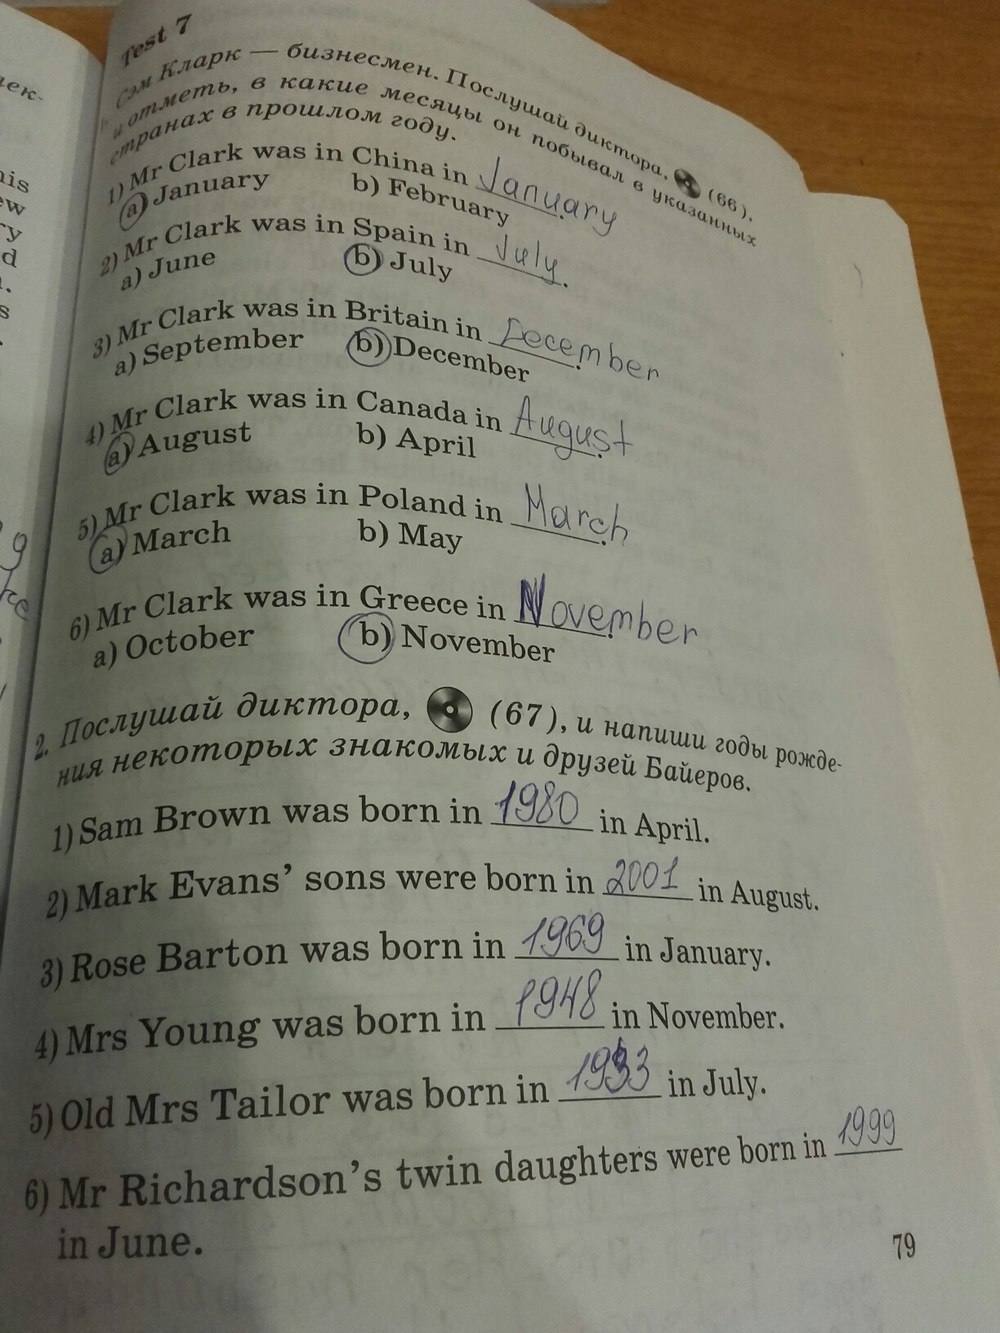 Test 7
Сэм Кларк — бизнесмен. Послушай диктора, (66),
и отметь, в какие месяцы он побывал в указанных
странах в прошлом году.
1) Mr Clark was in China in January.
a) January b) February
2) Mr Clark was in Spain in July.
a) June b) July
3) Mr Clark was in Britain in December.
a) September b) December
4) Mr Clark was in Canada in August.
a) August b) April
5) Mr Clark was in Poland in March.
a) March b) May
6) Mr Clark was in Greece in November.
a) October b) November
2. Послушай диктора, (67), и напиши годы рожде-
ния некоторых знакомых и друзей Байеров.
1) Sam Brown was born in 1980 in April.
2) Mark Evans’ sons were born in 2001 in August.
3) Rose Barton was born in 1969 in January.
4) Mrs Young was born in 1948 in November.
5) Old Mrs Tailor was born in 1933 in July.
6) Mr Richardson’s twin daughters were born in 1999
in June.
79